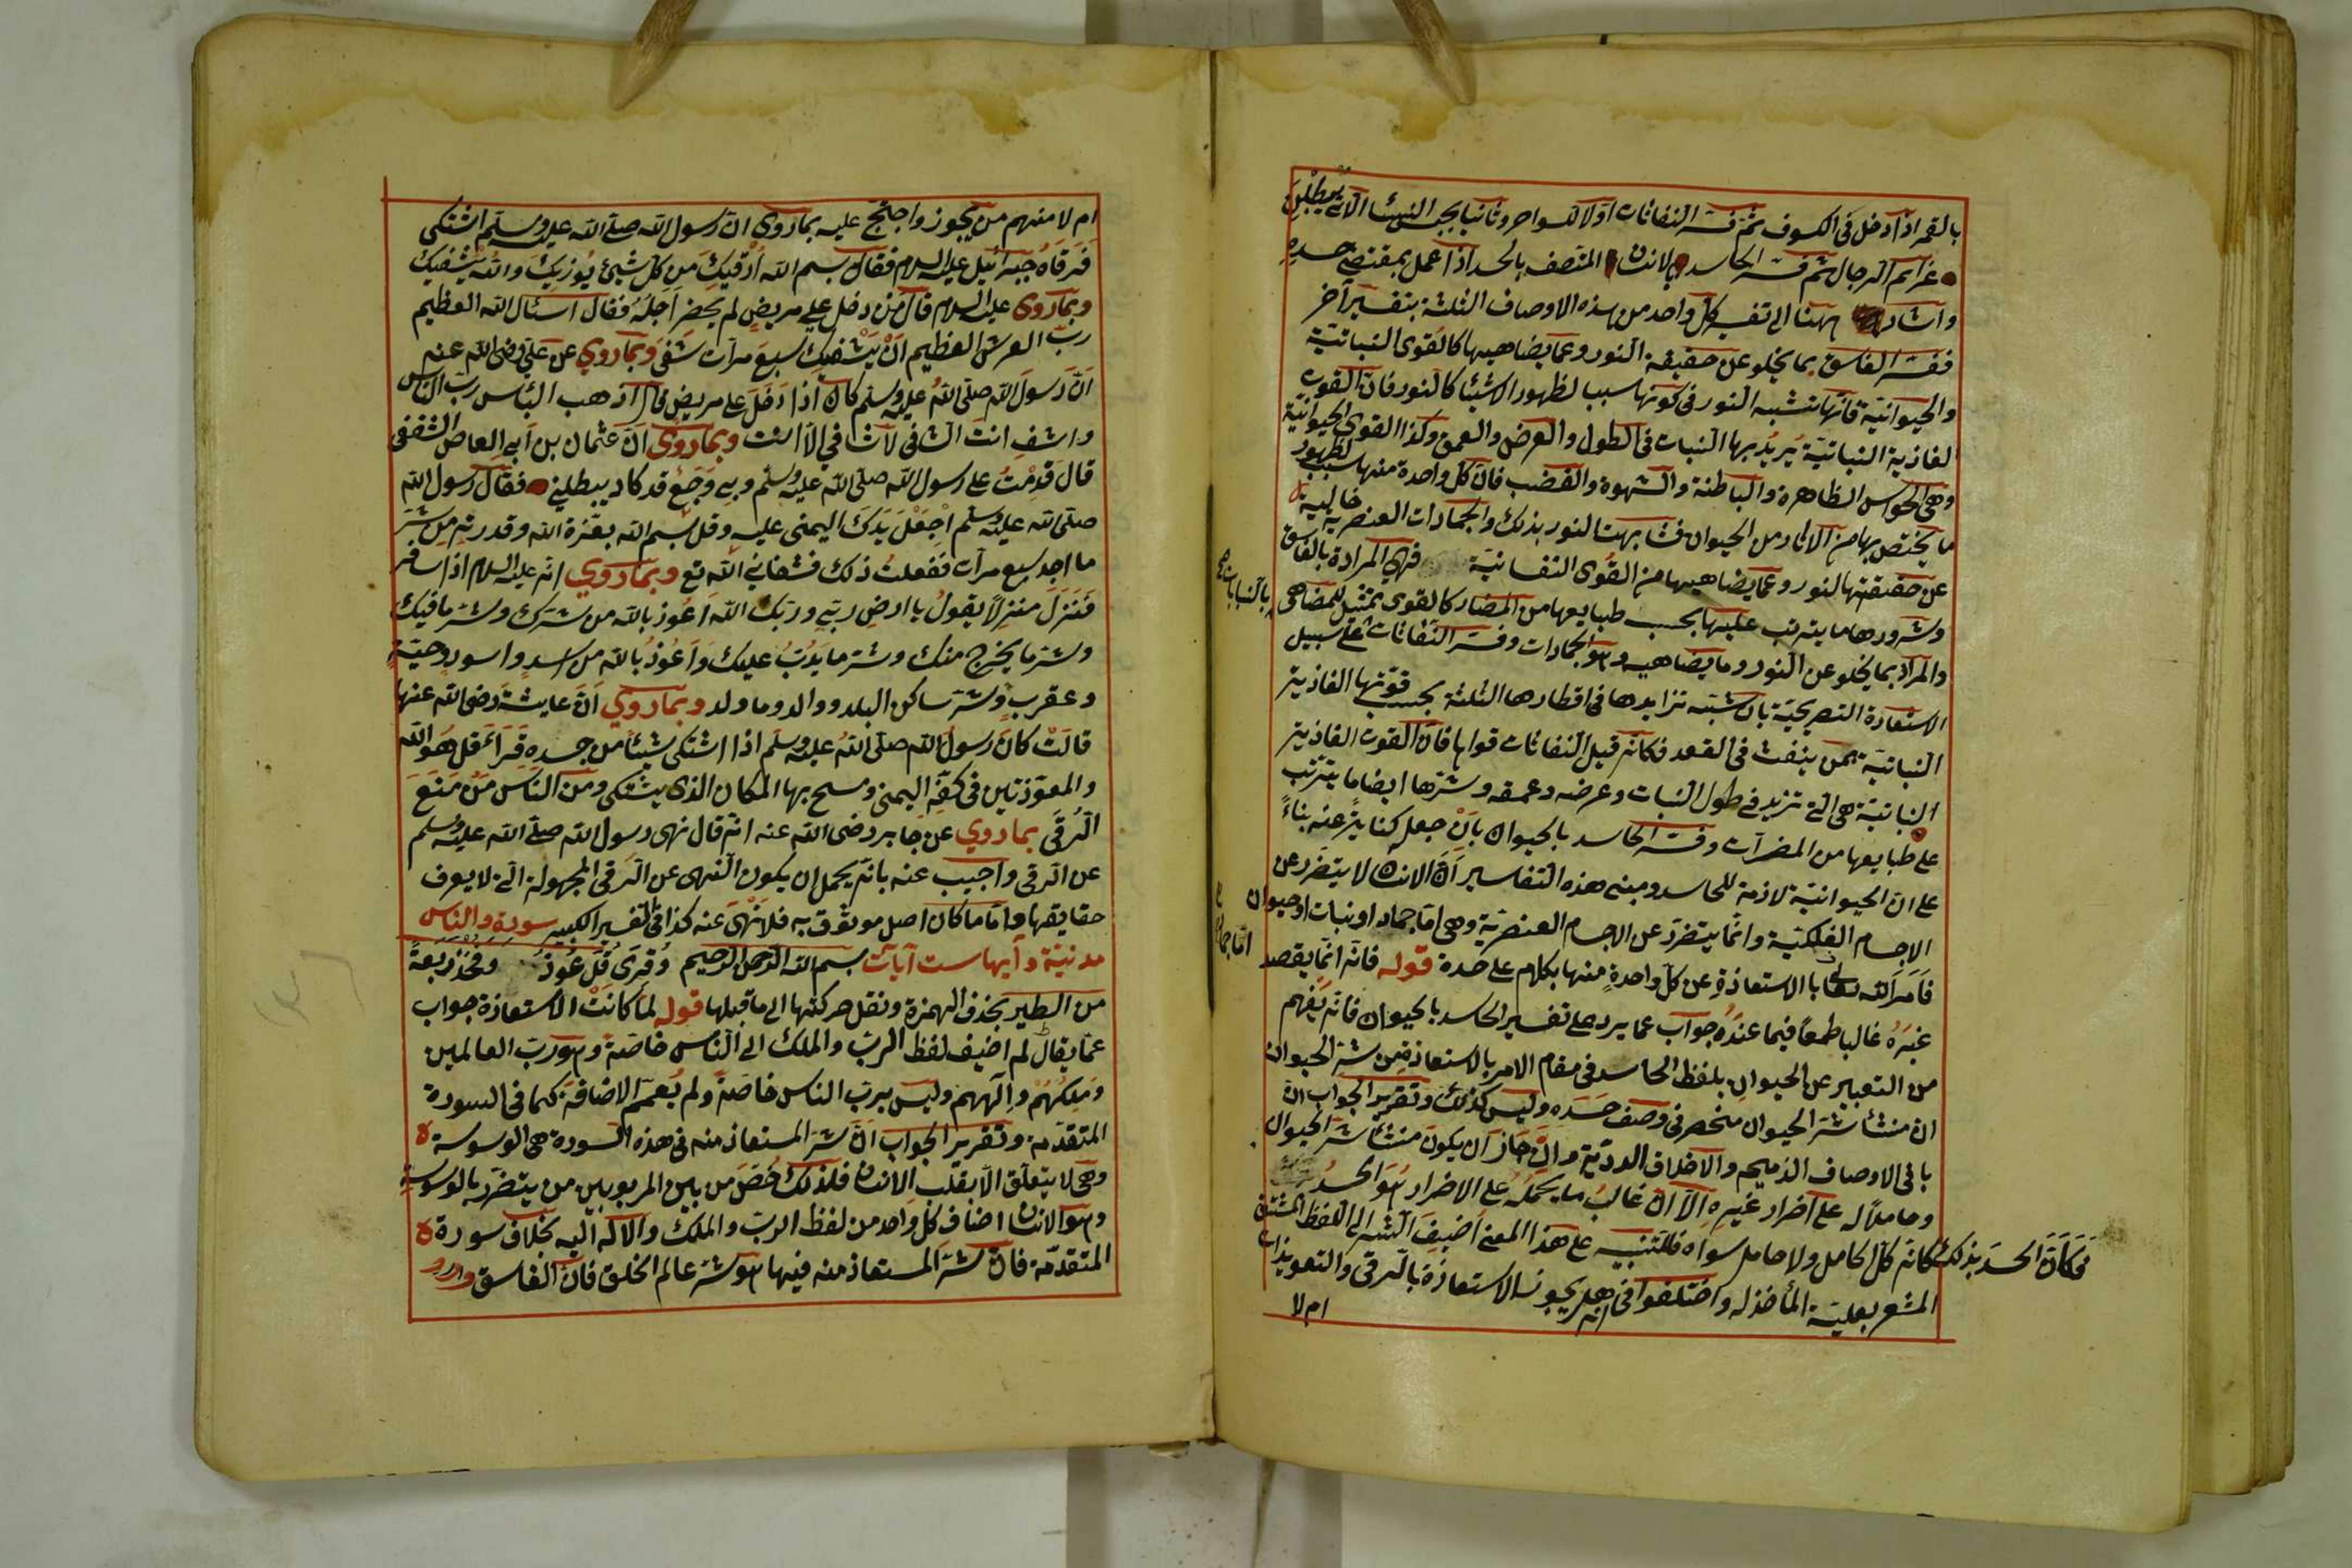 بالقمر اذا دخل فى الكسوف ثم فسر النفاثات اولا للسواحر وثانيا بجنس النساء الاتى يبطلن
عزايم الرجال ثم فسر الحاسد بالانسان المتصف بالحسد اذا عمل بمقتضى حسده
واشار ههنا الى تفسير كل واحد من هذه الاوصاف الثلثة بتفسير آخر
ففسر الغاسق بما يخلو عن حقيقة النور وعما يضاهيها كالقوى النباتية
والحيوانية فانها تشبه النور فى كونها سبب لظهور الاشياء كالنور فان القوت
لغاذية النباتية يزيد بها النبات فى الطول والعرض والعمق وكذا القوى الحيوانية
وهى الحواس الظاهرة والباطنة والشهوة والغضب فان كل واحدة منها سبب لظهور
ما يختص بها من الآثار من الحيوان فشابهت النور بذلك والجمادات العنصرية خالية
عن حقيقتها لنور وعما يضاهيها من القوى النفسانية فهى المرادة بالغاسق
وشرورها ما يترتب عليها بحسب طبايعها من المضار كالقوى تمثيل للمضاهى
بالنباتات
والمراد بما يخلو عن النور وما يضاهيه وهو الجمادات وفسر النفاثات على سبيل
الاستعارة التصريحية بان شبه تزايدها فى اقطارها الثلثة بحسب قوتها الغاذية
النباتية بمن ينفث فى العقد فكانه قيل النفاثات قواها فان القوت الغاذية
النباتية هى التى تزيد فى طول النبات وعرضه وعمقه وشرها ايضا ما يترتب
على طبايعها من المضرات وفسر الحاسد بالحيوان بان جعل كناية عنه بناءً
على ان الحيوانية لازمة للحاسد ومبنى هذه التفاسير ان الانسان لا يتضرر عن
الاجسام الفلكية وانما يتضرر عن الاجسام العنصرية وهى اما جماد او نبات او حيوان
فامر الله تعالى بالاستعاذة عن كل واحدة منها بكلام على حدة قوله فانه انما يقصد
غيره غالبا طمعا فيما عنده جواب عما يرد على تفسير الحاسد بالحيوان فانه يفهم
من التعبير عن الحيوان بلفظ الحاسد فى مقام الامر بالاستعاذة من شر الحيوان
ان منشأ شر الحيوان منحصر فى وصف حسده وليس كذلك وتقرير الجواب ان
باقى الاوصاف الذميمة والاخلاق الردية وان جاز ان يكون منشأ شر الحيوان
وحاملا له على اضرار غيره الا ان غالب ما يحمله على الاضرار هو الحسد
فكان الحسد بذلك كانه كل الحامل ولا حامل سواه فللتنبيه على هذا المعنى اضيف الشر الى اللفظ المشتق
المشعر بعلية المأخذ له واختلفوا فى انه هل يجوز الاستعاذة بالرقى والتعويذات
ام لا
ام لا منهم من يجوز واحتج عليه بما روى ان رسول الله صلى الله عليه وسلم اشتكى
فرقاه جبرائيل عليه السلام فقال بسم الله ارقيك من كل شيئ يؤذيك والله يشفيك
وبما روى عليه السلام قال من دخل على مريض لم يحضر اجله فقال اسئل الله العظيم
رب العرش العظيم ان يشفيك سبع مرات شفى وبما روي عن على رضى الله عنه
ان رسول الله صلى الله عليه وسلم كان اذا دخل على مريض قال اذهب البأس رب الناس
واشف انت الشافى لا شافي الا انت وبما روى ان عثمان بن ابى العاص الثقفى
قال قدمت على رسول الله صلى الله عليه وسلم وبى وجع قد كاد يبطلنى فقال رسول الله
صلى الله عليه وسلم اجعل يدك اليمنى عليه وقل بسم الله بعزة الله وقدرته من شر
ما اجد سبع مرات ففعلت ذلك فشفاني الله تع وبما روي انه عليه السلام اذا سافر
فنزل منزلا يقول يا ارض ربي وربك الله اعوذ بالله من شرك وشر ما فيك
وشر ما يخرج منك وشر ما يدب عليك واعوذ بالله من اسد واسود وحية
وعقرب وشر ساكن البلد ووالد وما ولد وبما روي ان عايشة رضى الله عنها
قالت كان رسول الله صلى الله عليه وسلم اذا اشتكى شيئا من جسده قرأ قل هو الله
والمعوذتين فى كفه اليمنى ومسح بها المكان الذى يشتكى ومن الناس من منع
الرقى بما روي عن جابر رضى الله عنه انه قال نهى رسول الله صلى الله عليه وسلم
عن الرقى واجيب عنه بانه يحمل ان يكون النهى عن الرقى المجهولة التى لا يعرف
حقايقها واما ما كان اصل موثوق به فلا نهى عنه كذا فى تفسير الكبير سورة والناس
مدنية وآيها ست آيات بسم الله الرحمن الرحيم وقرى قل عوذ وفخذ ربعة
من الطير بحذف الهمزة ونقل حركتها الى ما قبلها قوله لما كانت الاستعاذة جواب
عما يقال لم اضيف لفظ الرب والملك الى الناس خاصة وهو رب العالمين
وملكهم والههم وليس برب الناس خاصة ولم يعمم الاضافة كما فى السورة
المتقدمة وتقرير الجواب ان شر المستعاذ منه فى هذه السورة هى الوسوسة
وهى لا يتعلق الا بقلب الانسان فلذلك خص من بين المربوبين من يتضرر بالوسوسة
وهو الانسان اضاف كل واحد من لفظ الرب والملك والاله اليه بخلاف سورة
المتقدمة فان شر المستعاذ منه فيها هو شر عالم الخلق فان الغاسق